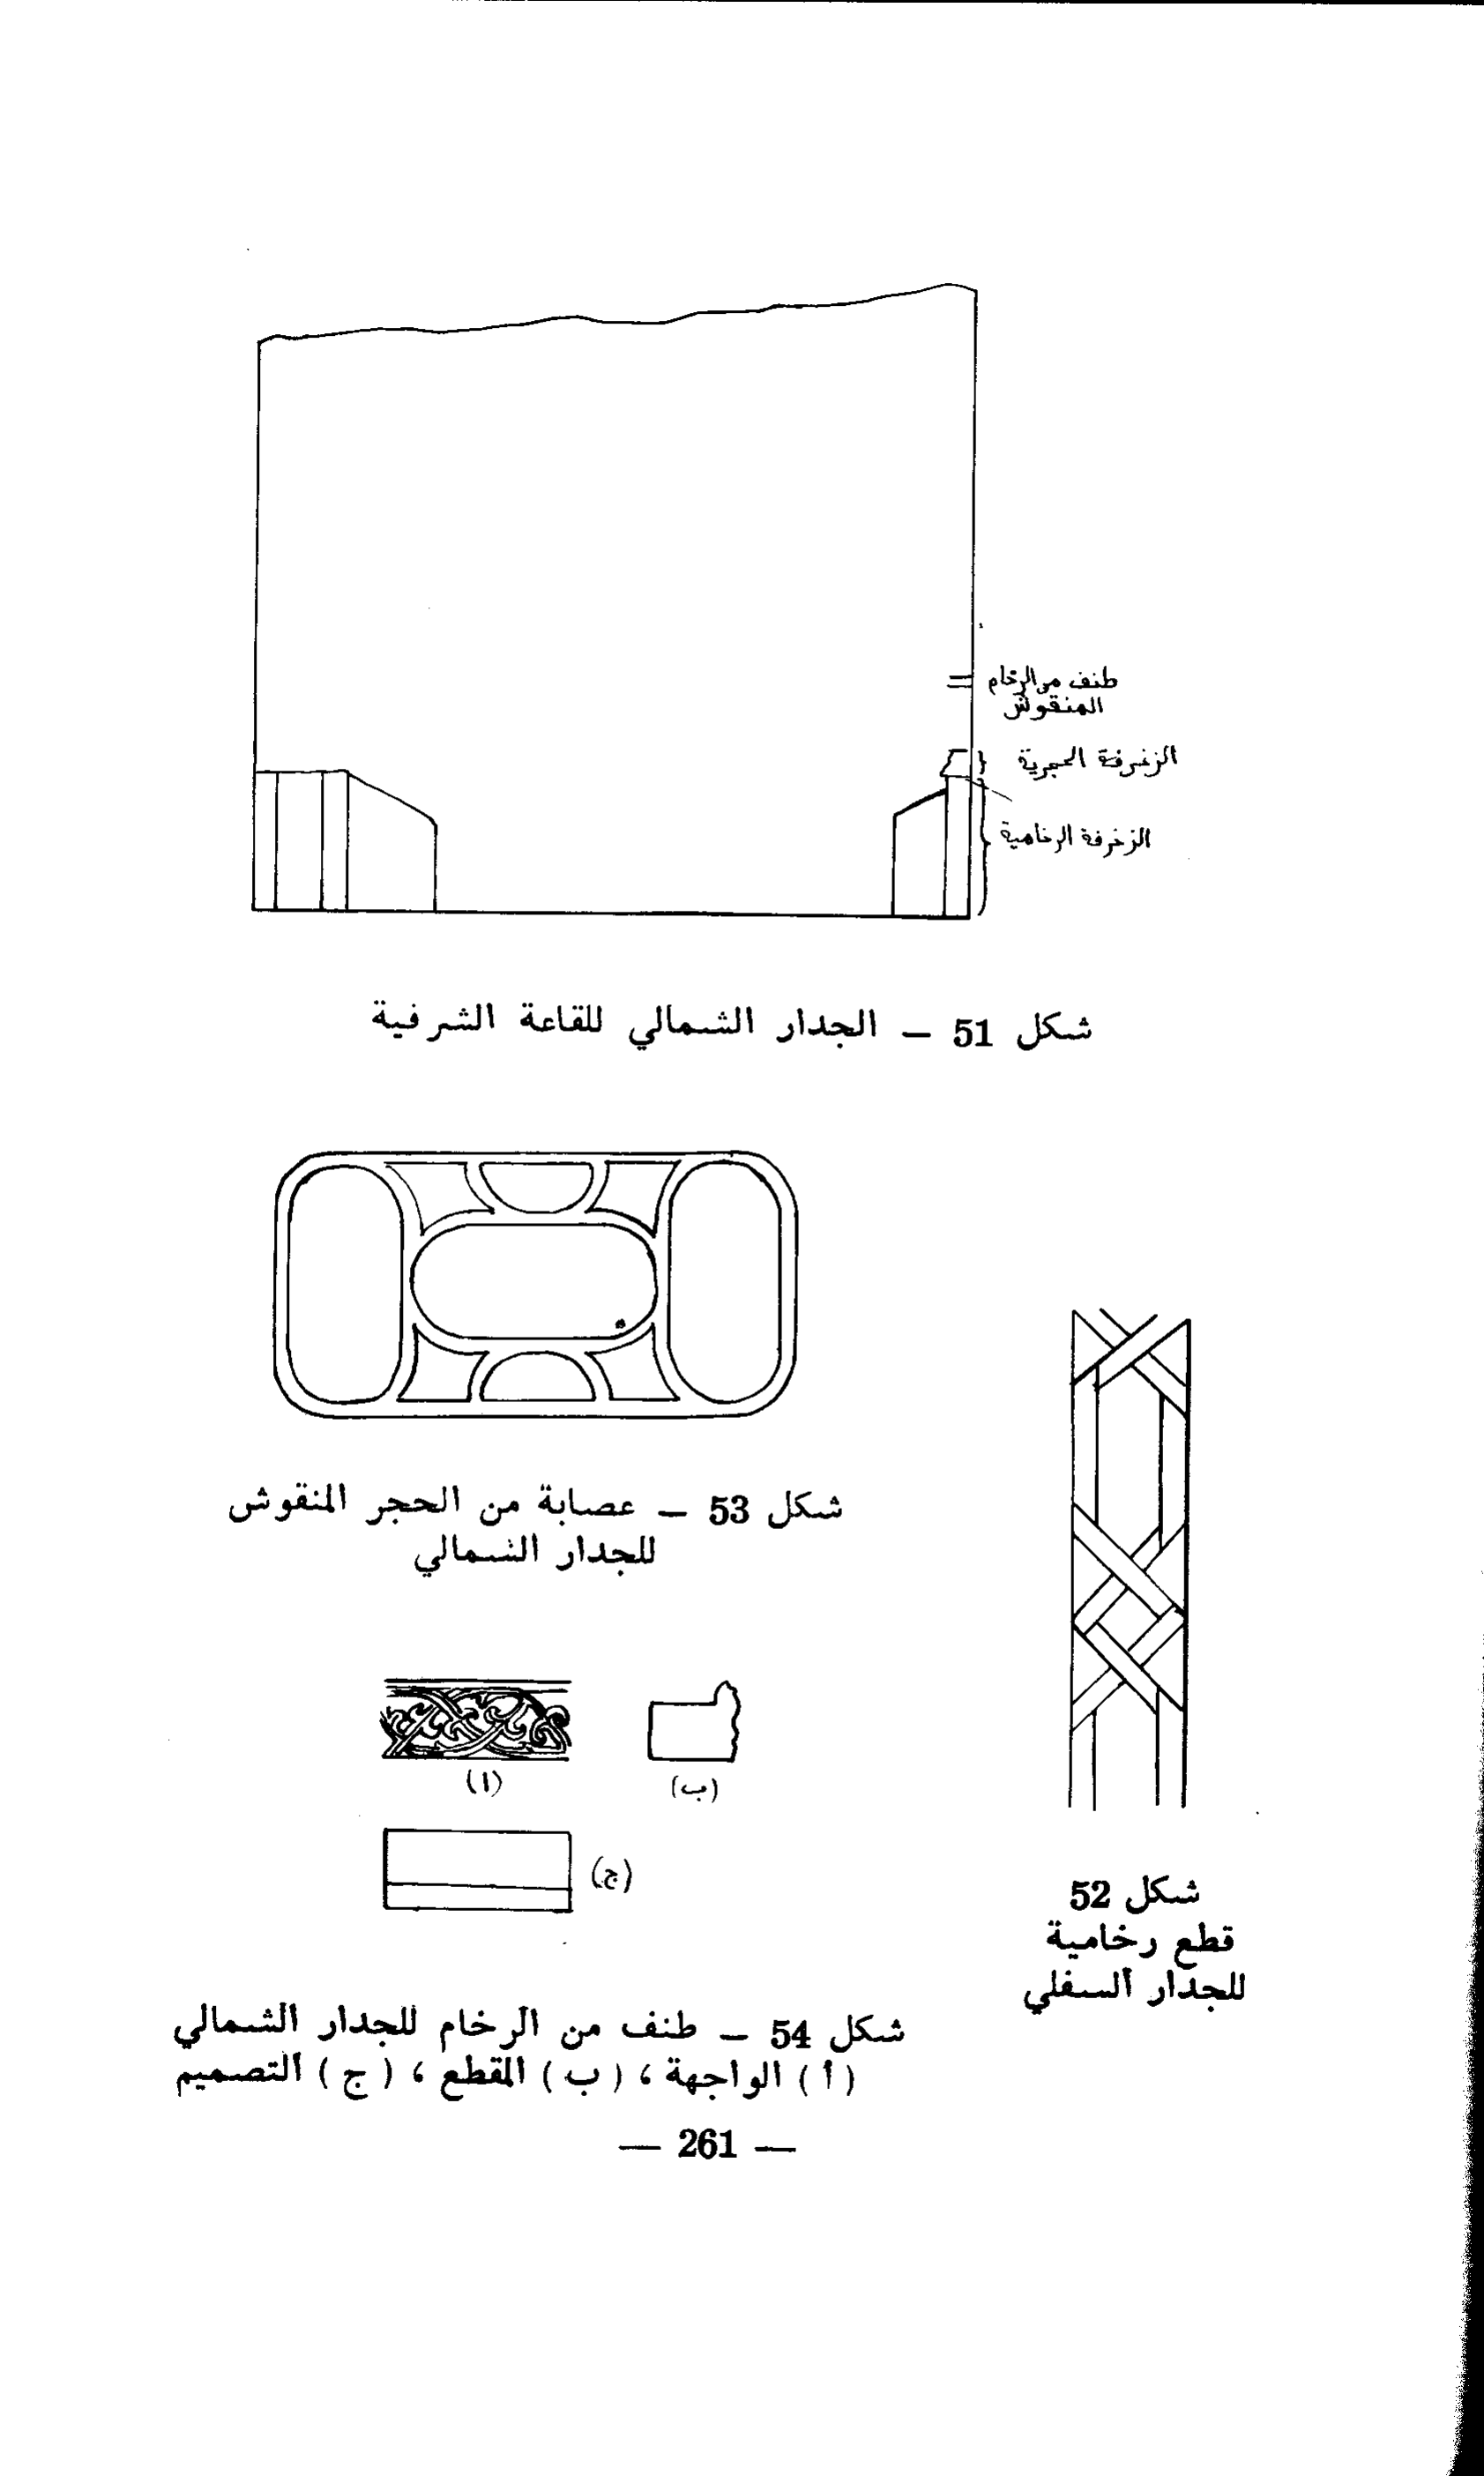 طنف من الرخام
المنقوش
الزخرفة الحجرية
الزخرفة الرخامية
شكل 51 — الجدار الشمالي للقاعة الشرفية
شكل 53 — عصابة من الحجر المنقوش
للجدار الشمالي
(ا)
(ب)
(ج)
شكل 52
قطع رخامية
للجدار السفلي
شكل 54 — طنف من الرخام للجدار الشمالي
( أ ) الواجهة ، ( ب ) المقطع ، ( ج ) التصميم
— 261 —